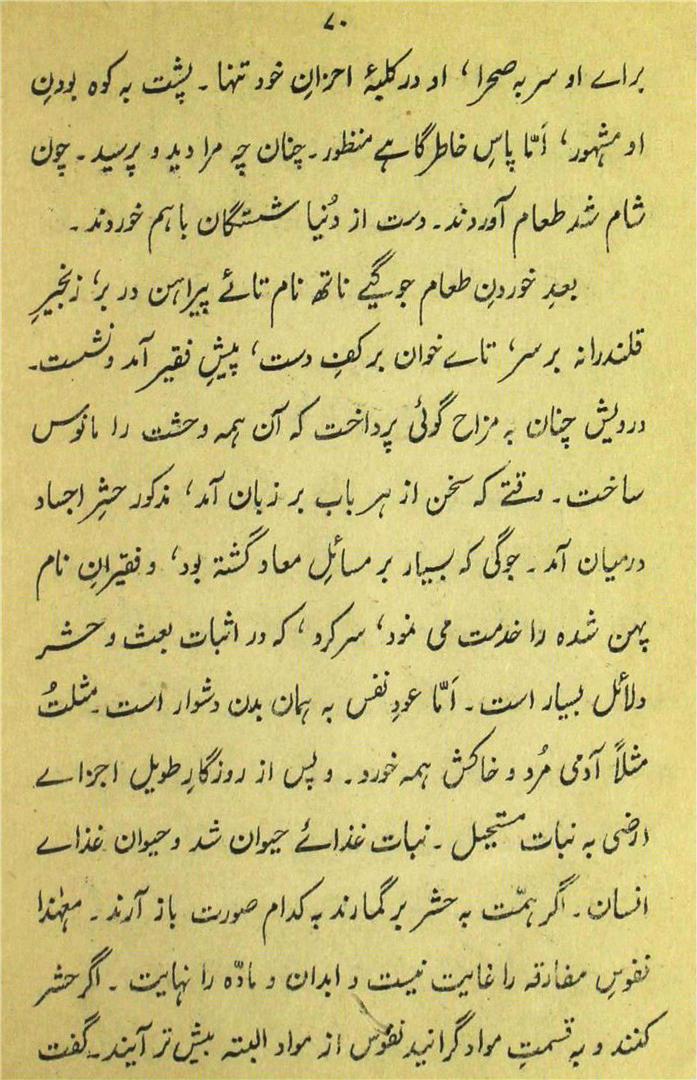 ۷۰
براے او سر بہ صحرا، او در کلبۂ احزانِ خود تنہا۔ پشت بہ کوہ بودنِ
او مشہور، اَمّا پاسِ خاطر گاہے منظور۔ چنان چہ مرا دید و پرسید۔ چون
شام شد طعام آوردند۔ دست از دُنیا شستگان باہم خوردند۔
بعدِ خوردنِ طعام جوگیے ناتھ نام تائے پیراہن در بر، زنجیرِ
قلندرانہ بر سر، تاے خوان بر کفِ دست، پیشِ فقیر آمد و نشست۔
درویش چنان بہ مزاح گوئی پرداخت کہ آن ہمہ وحشت را مانوس
ساخت۔ وقتے کہ سخن از ہر باب بر زبان آمد، مذکور حشرِ اجساد
درمیان آمد۔ جوگی کہ بسیار بر مسائلِ معاد گشتہ بود، و فقیرانِ نام
پہن شدہ را خدمت می نمود، سر کرد، کہ در اثبات بعث و حشر
دلائل بسیار است۔ اَمّا عودِ نفس بہ ہمان بدن دشوار است۔
مثلاً آدمی مُرد و خاکش ہمہ خورد۔ و پس از روزگارِ طویل اجزاے
ارضی بہ نبات مستحیل۔ نبات غذائے حیوان شد و حیوان غذاے
انسان۔ اگر ہمّت بہ حشر بر گمارند بہ کدام صورت باز آرند۔ معہٰذا
نفوسِ مفارقہ را غایت نیست و ابدان و مادّہ را نہایت۔ اگر حشر
کنند و بہ قسمتِ مواد گرانید نفوس از مواد البتہ بیش تر آیند۔ گفت